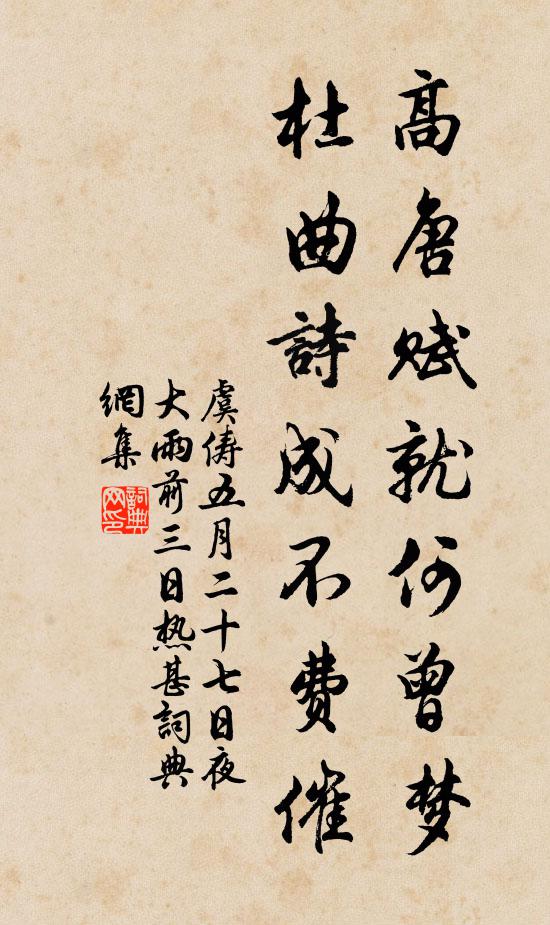 高唐赋就何曾梦
杜曲詩成不费催
虞俦五月二十七日夜
大雨前三日热甚詞典
網集
詞典
网印